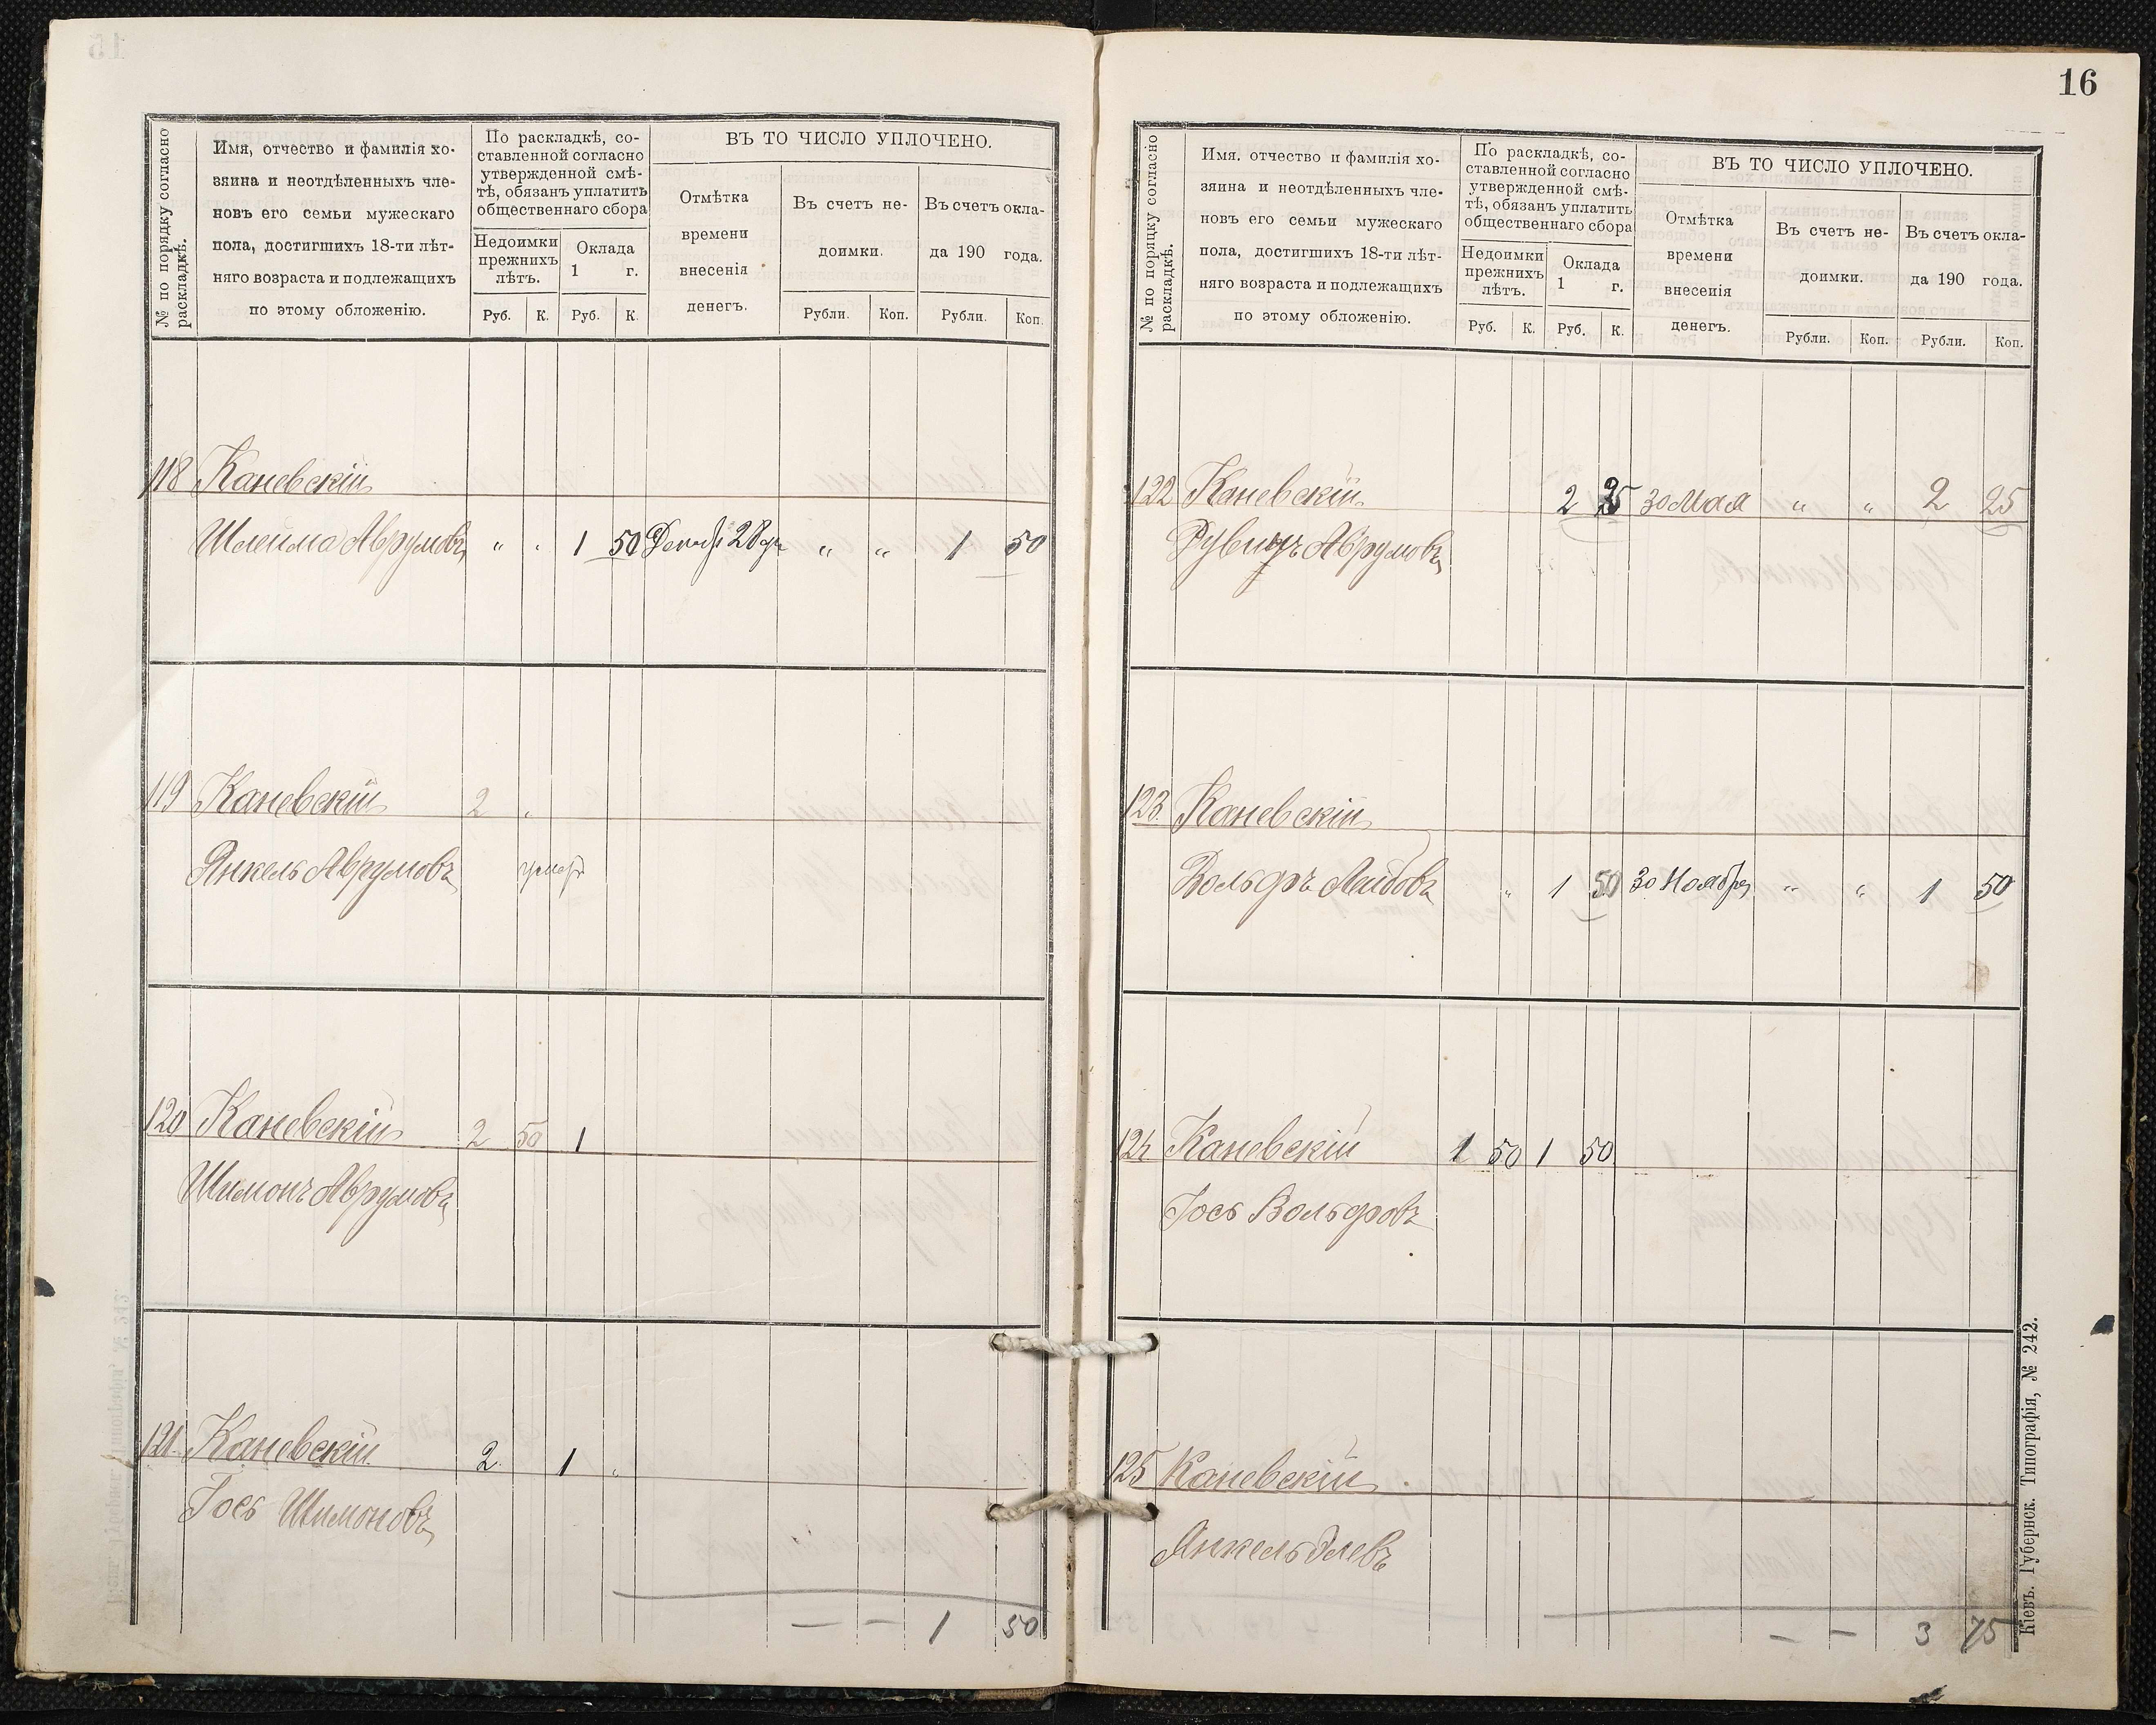 16
№ по порядку согласно раскладкѣ.
Имя, отчество и фамилія хо-
зяина и неотдѣленныхъ чле-
новъ его семьи мужескаго
пола, достигшихъ 18-ти лѣт-
няго возраста и подлежащихъ
по этому обложенію.
По раскладкѣ, со-
ставленной согласно
утвержденной смѣ-
тѣ, обязанъ уплатить
общественнаго сбора
Недоимки
прежнихъ
лѣтъ.
Оклада
1 г.
Руб. К. Руб. К.
ВЪ ТО ЧИСЛО УПЛОЧЕНО.
Отмѣтка
времени
внесенія
денегъ.
Въ счетъ не-
доимки.
Рубли. Коп.
Въ счетъ окла-
да 190 года.
Рубли. Коп.
118 Каневскій
Шлейма Аврумовъ " " 1 50 28 " " 1 50
119 Каневскій 2 "
Янкель Аврумовъ умеръ
120 Каневскій 2 50 1
Шимонъ Аврумовъ
121 Каневскій 2 1 "
Іось Шимоновъ
— — 1 50
№ по порядку согласно раскладкѣ.
Имя. отчество и фамилія хо-
зяина и неотдѣленныхъ чле-
новъ его семьи мужескаго
пола, достигшихъ 18-ти лѣт-
няго возраста и подлежащихъ
по этому обложенію.
По раскладкѣ, со-
ставленной согласно
утвержденной смѣ-
тѣ, обязанъ уплатить
общественнаго сбора
Недоимки
прежнихъ
лѣтъ.
Оклада
1 г.
Руб. К. Руб. К.
ВЪ ТО ЧИСЛО УПЛОЧЕНО.
Отмѣтка
времени
внесенія
денегъ.
Въ счетъ не-
доимки.
Рубли. Коп.
Въ счетъ окла-
да 190 года.
Рубли. Коп.
122 Каневскій 2 25 30 Мая " " 2 25
Рувинъ Аврумовъ
123. Каневскій
Вольфъ Лейбовъ " 1 50 30 Ноября " " 1 50
124 Каневскій 1 50 1 50
Іось Вольфовъ
125 Каневскій
Янкель Элевъ
— — 3 75
Кіевъ. Губернск. Типографія, № 242.